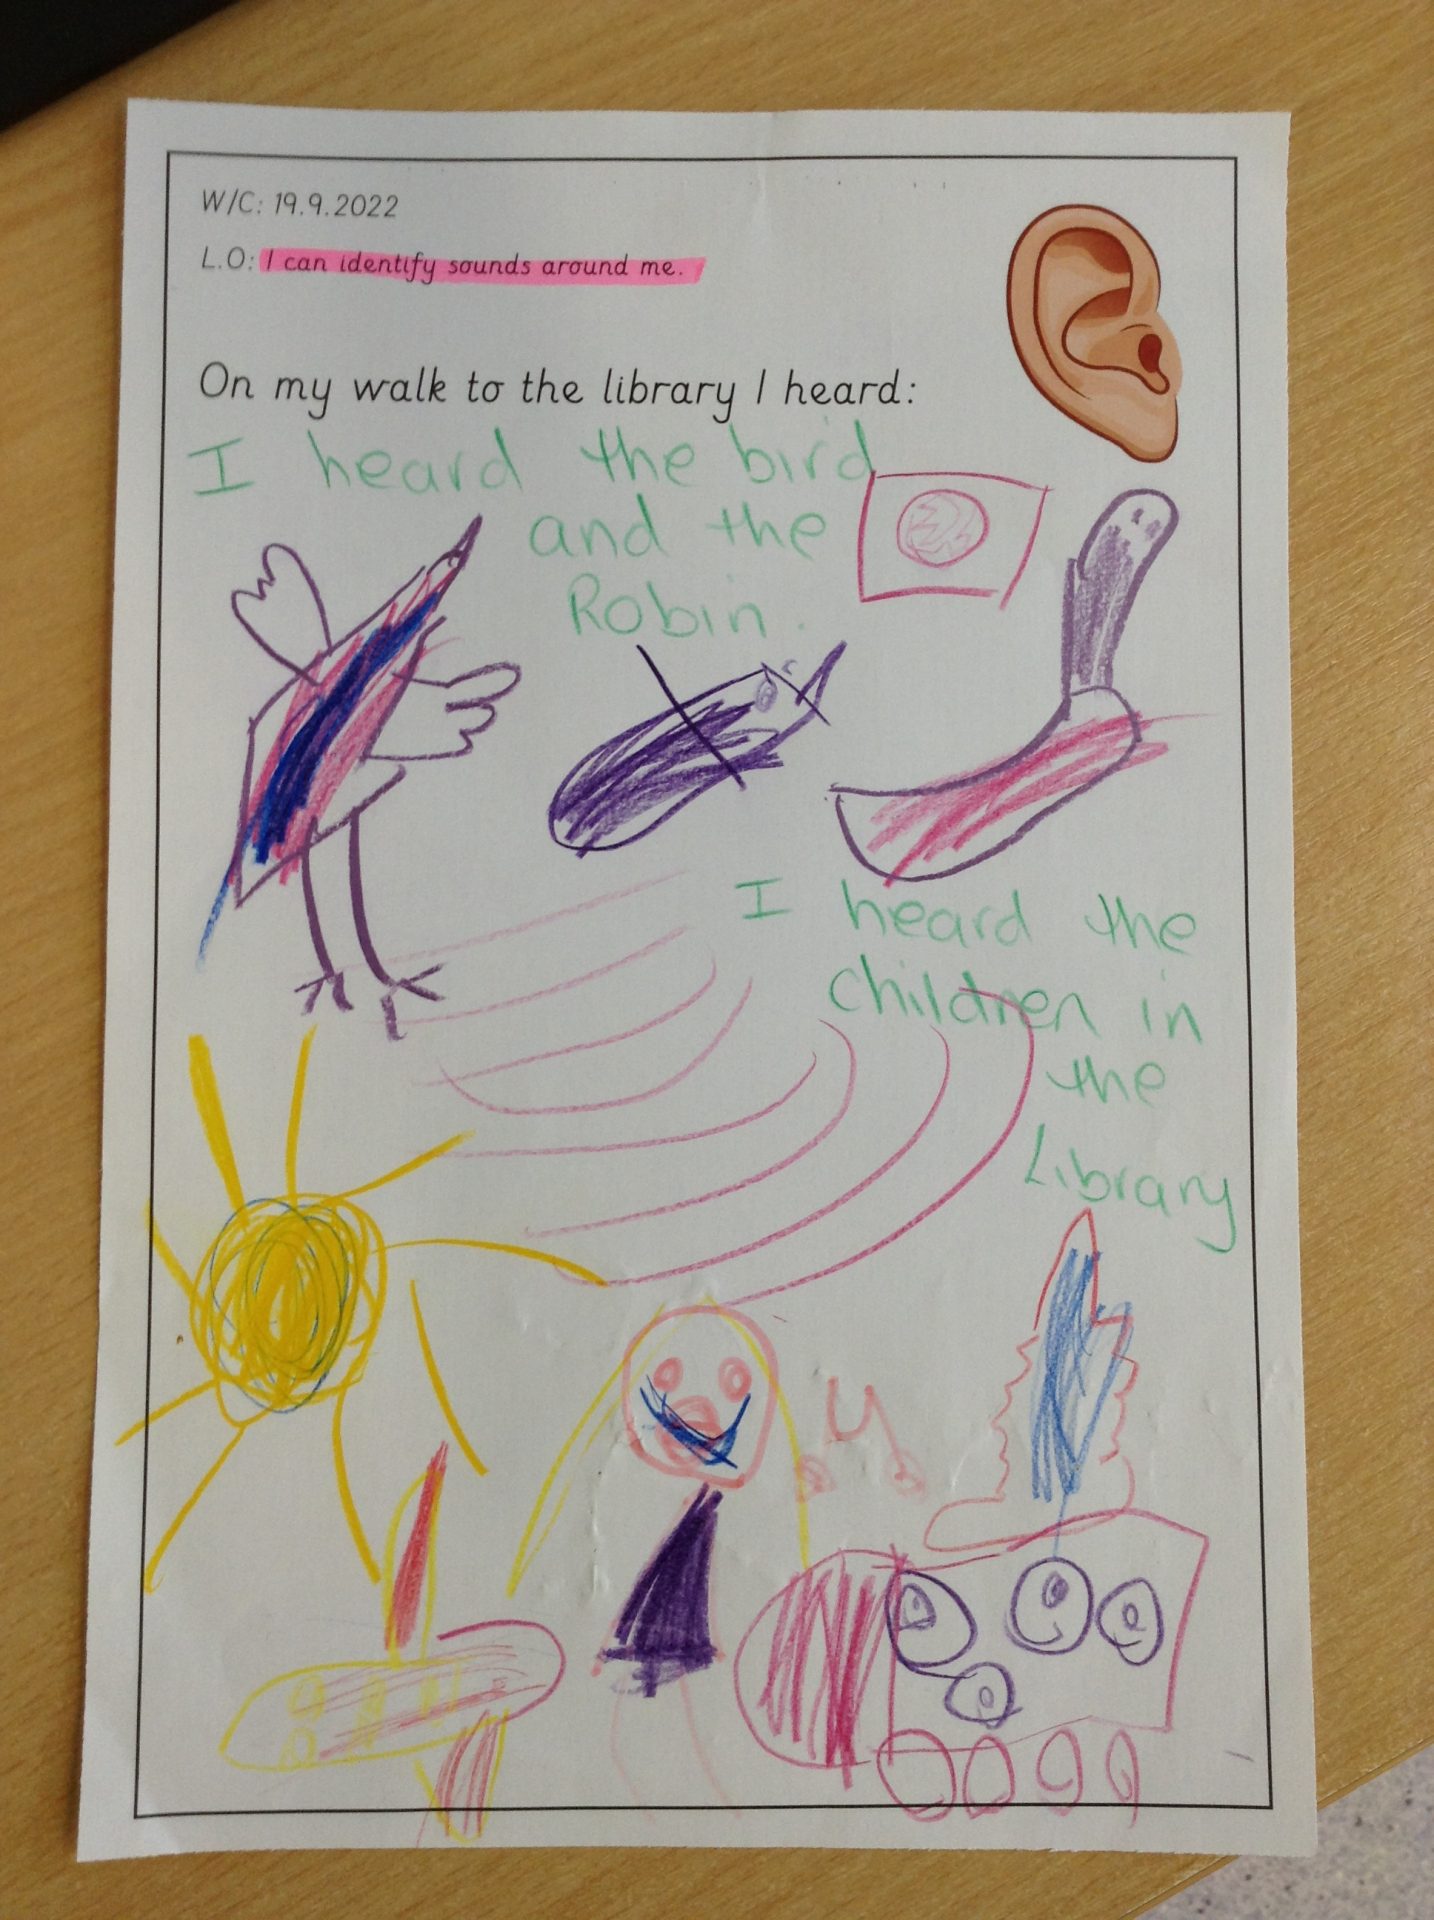 W/C: 19.9.2022
L.O: I can identify sounds around me.
On my walk to the library I heard:
I heard the bird
and the
Robin.
I heard the
children in
the
Library